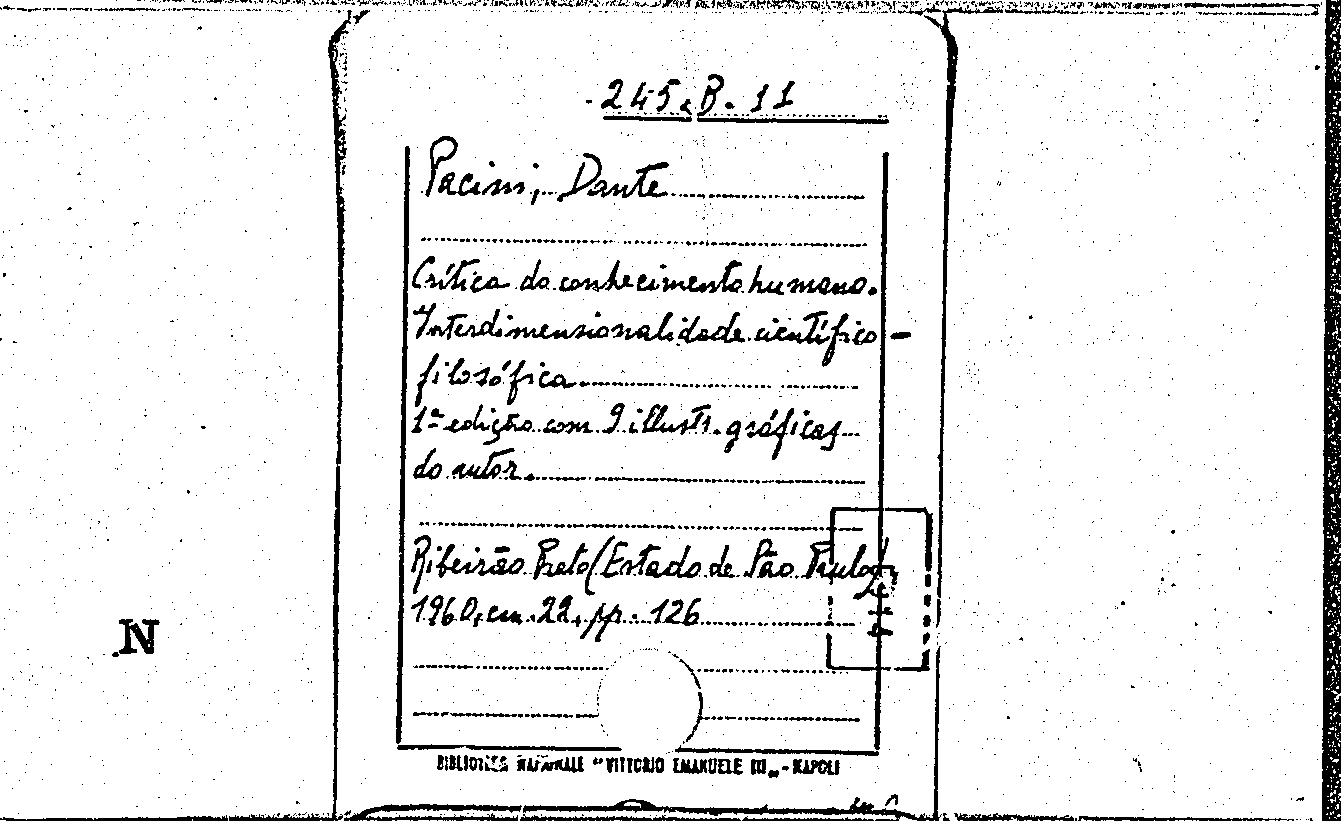 245.B.11
Pacini, Dante
Crítica do conhecimento humano.
Interdimensionalidade científico-
filosófica.
1ª edição com 9 illustr. gráficas
do autor.
Ribeirão Preto (Estado de São Paulo),
1960, cm. 22, pp. 126
N
BIBLIOTECA NAZIONALE "VITTORIO EMANUELE III" - NAPOLI